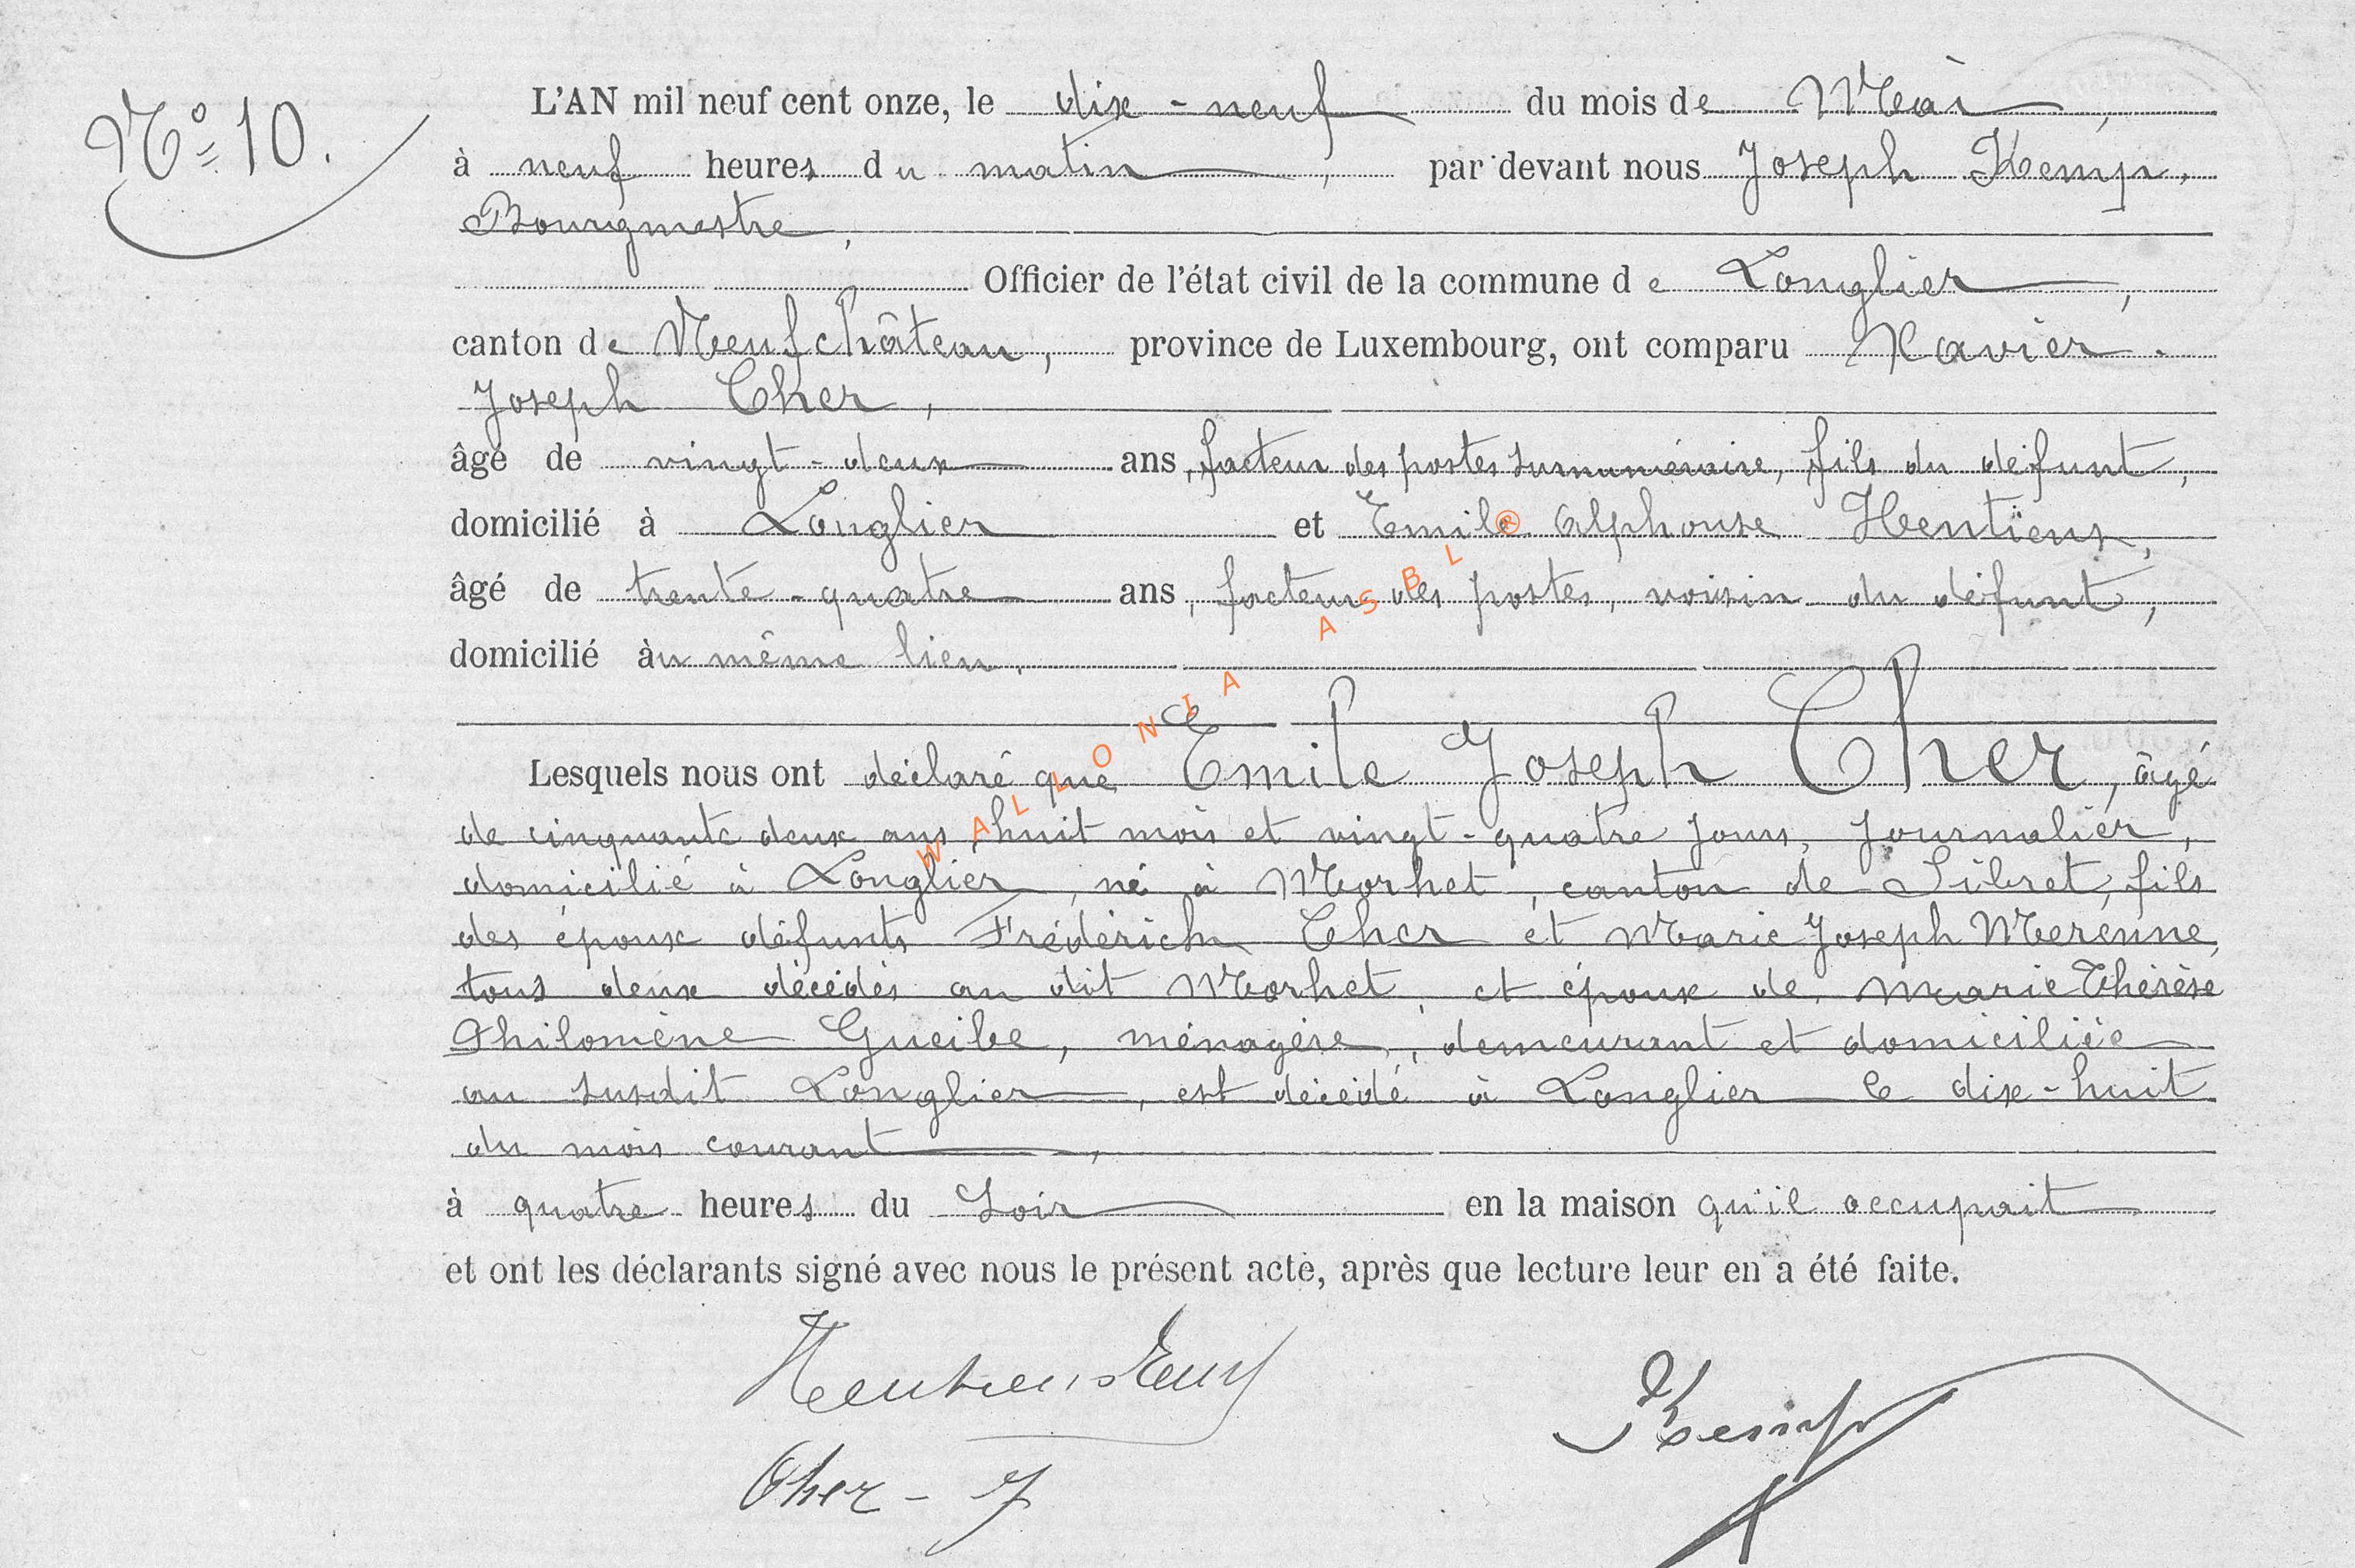 N° 10.
L'AN mil neuf cent onze, le dix-neuf du mois de Mai,
à neuf heures du matin, par devant nous Joseph Kemp,
Bourgmestre,
Officier de l'état civil de la commune de Longlier,
canton de Neufchâteau, province de Luxembourg, ont comparu Xavier-
Joseph Cher,
âgé de vingt-deux ans, facteur des postes surnuméraire, fils du défunt,
domicilié à Longlier et Emile Alphonse Hentiens,
âgé de trente-quatre ans, facteur des postes, voisin du défunt,
domicilié àu même lieu.
Lesquels nous ont déclaré que Emile Joseph Cher, âgé
de cinquante deux ans huit mois et vingt-quatre jours, journalier,
domicilié à Longlier, né à Morhet, canton de Sibret, fils
des époux défunts Frédérich Cher et Marie Joseph Merenne,
tous deux décédés au dit Morhet, et époux de Marie Thérèse
Philomène Gueibe, ménagère, demeurant et domiciliée
au susdit Longlier, est décédé à Longlier le dix-huit
du mois courant,
à quatre heures du soir en la maison qu'il occupait
et ont les déclarants signé avec nous le présent acte, après que lecture leur en a été faite.
Hentiens Kemp
Cher - J
WALLONIA ASBL ®